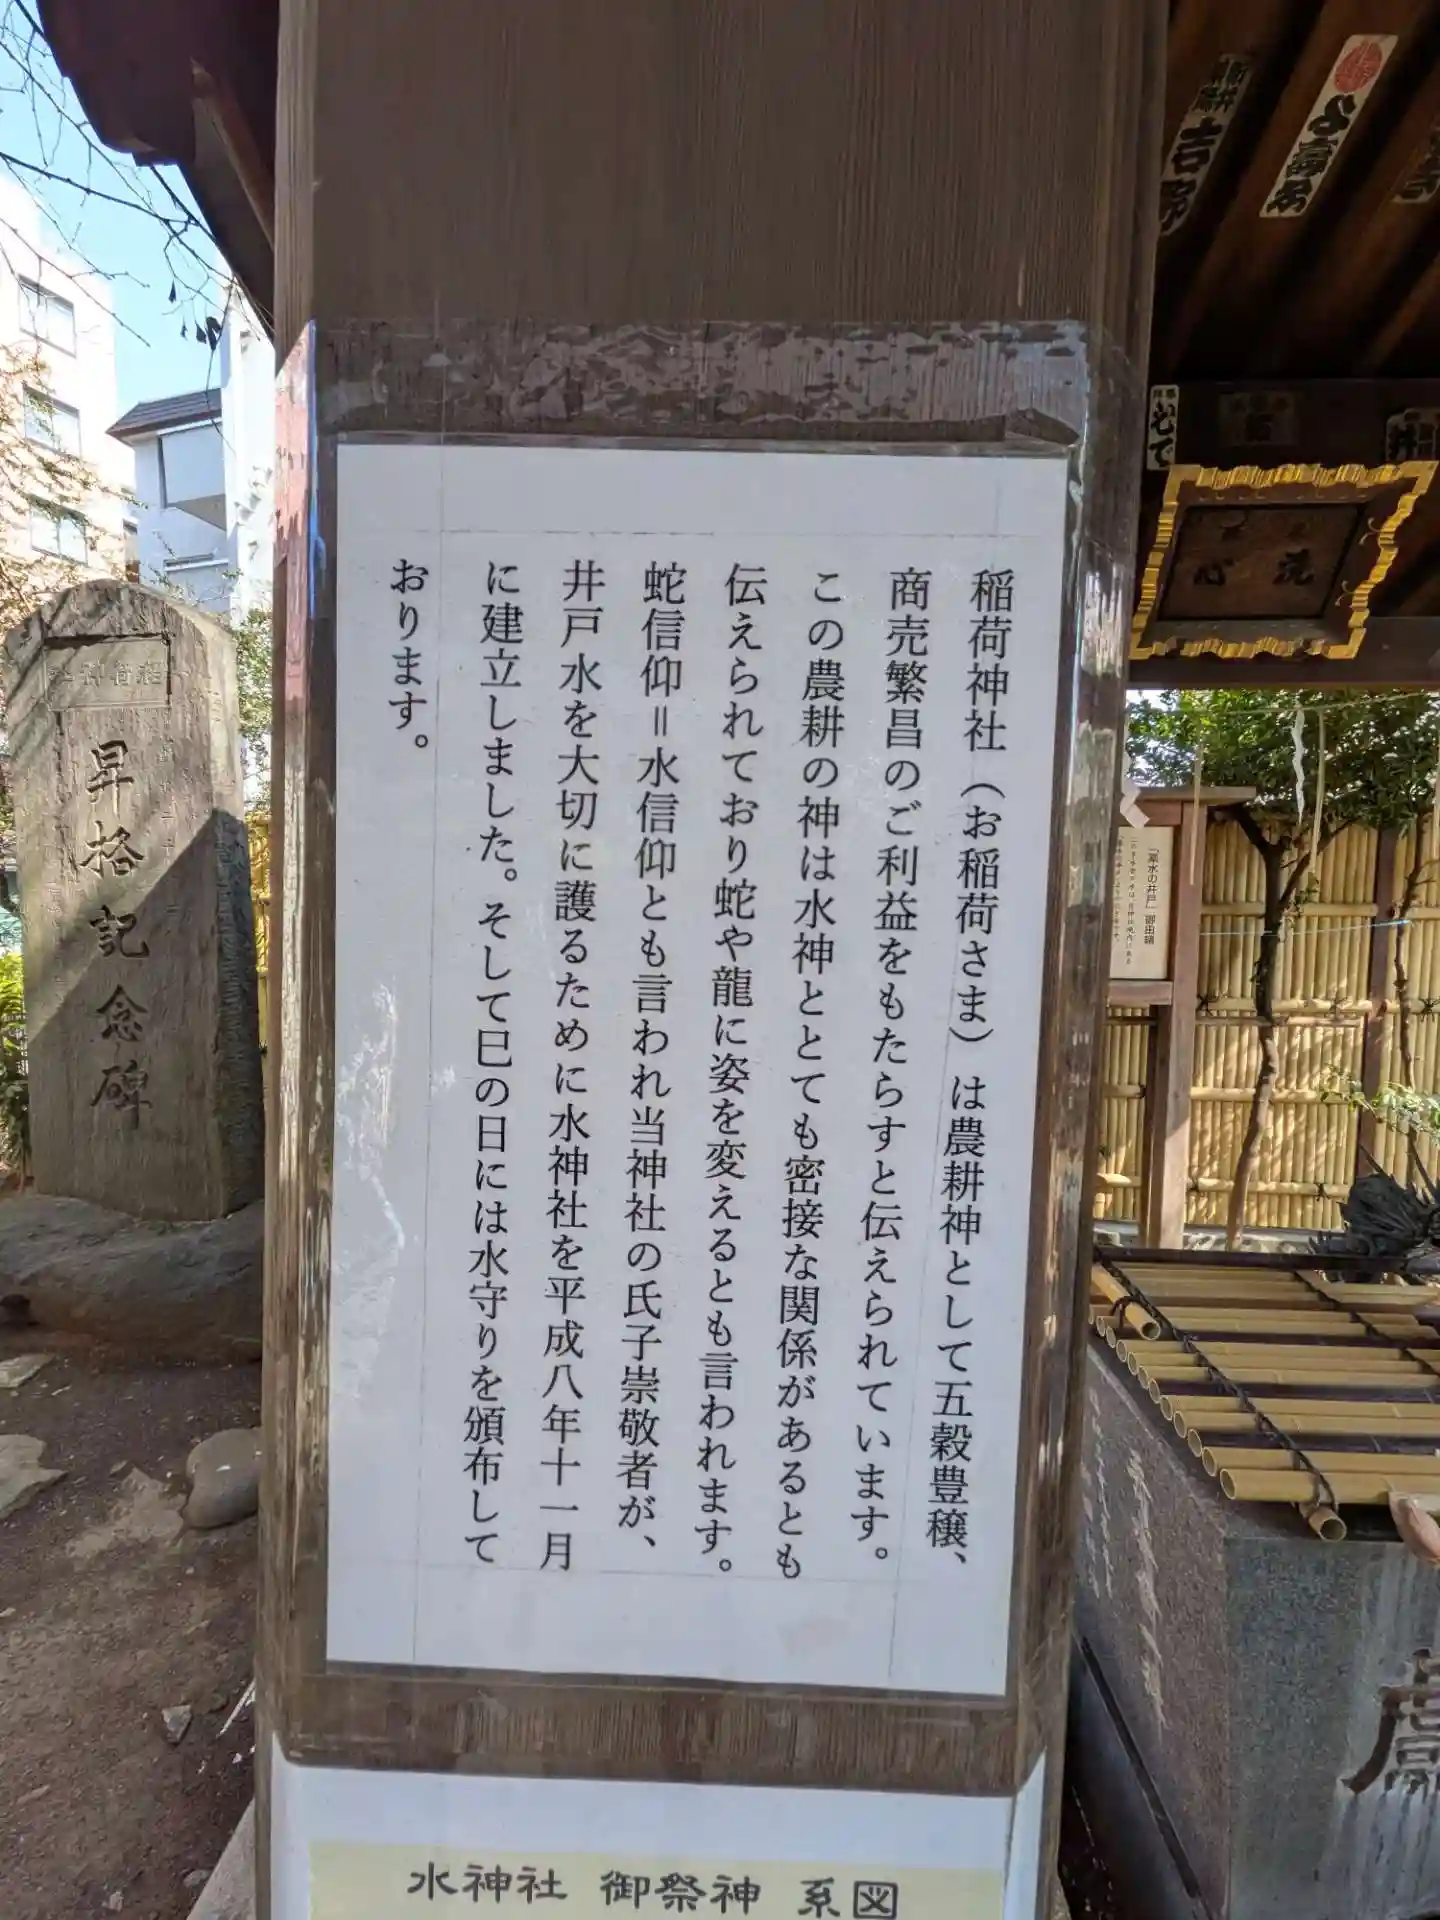 稲荷神社（お稲荷さま）は農耕神として五穀豊穣、
商売繁昌のご利益をもたらすと伝えられています。
この農耕の神は水神ととても密接な関係があるとも
伝えられており蛇や龍に姿を変えるとも言われます。
蛇信仰＝水信仰とも言われ当神社の氏子崇敬者が、
井戸水を大切に護るために水神社を平成八年十一月
に建立しました。そして巳の日には水守りを頒布して
おります。
水神社 御祭神 系図
昇格記念碑
洗心
「薬水の井戸」御由緒